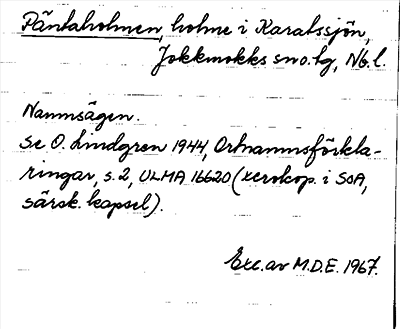 Päntaholmen, holme i Karatssjön,
Jokkmokks sno.lg, Nb.l.
Namnsägen.
Se O. Lindgren 1944, Ortnamnsförkla-
ringar, s. 2, ULMA 16620 (xerokop. i SOA,
särsk. kapsel).
Exc. av M.D.E. 1967.